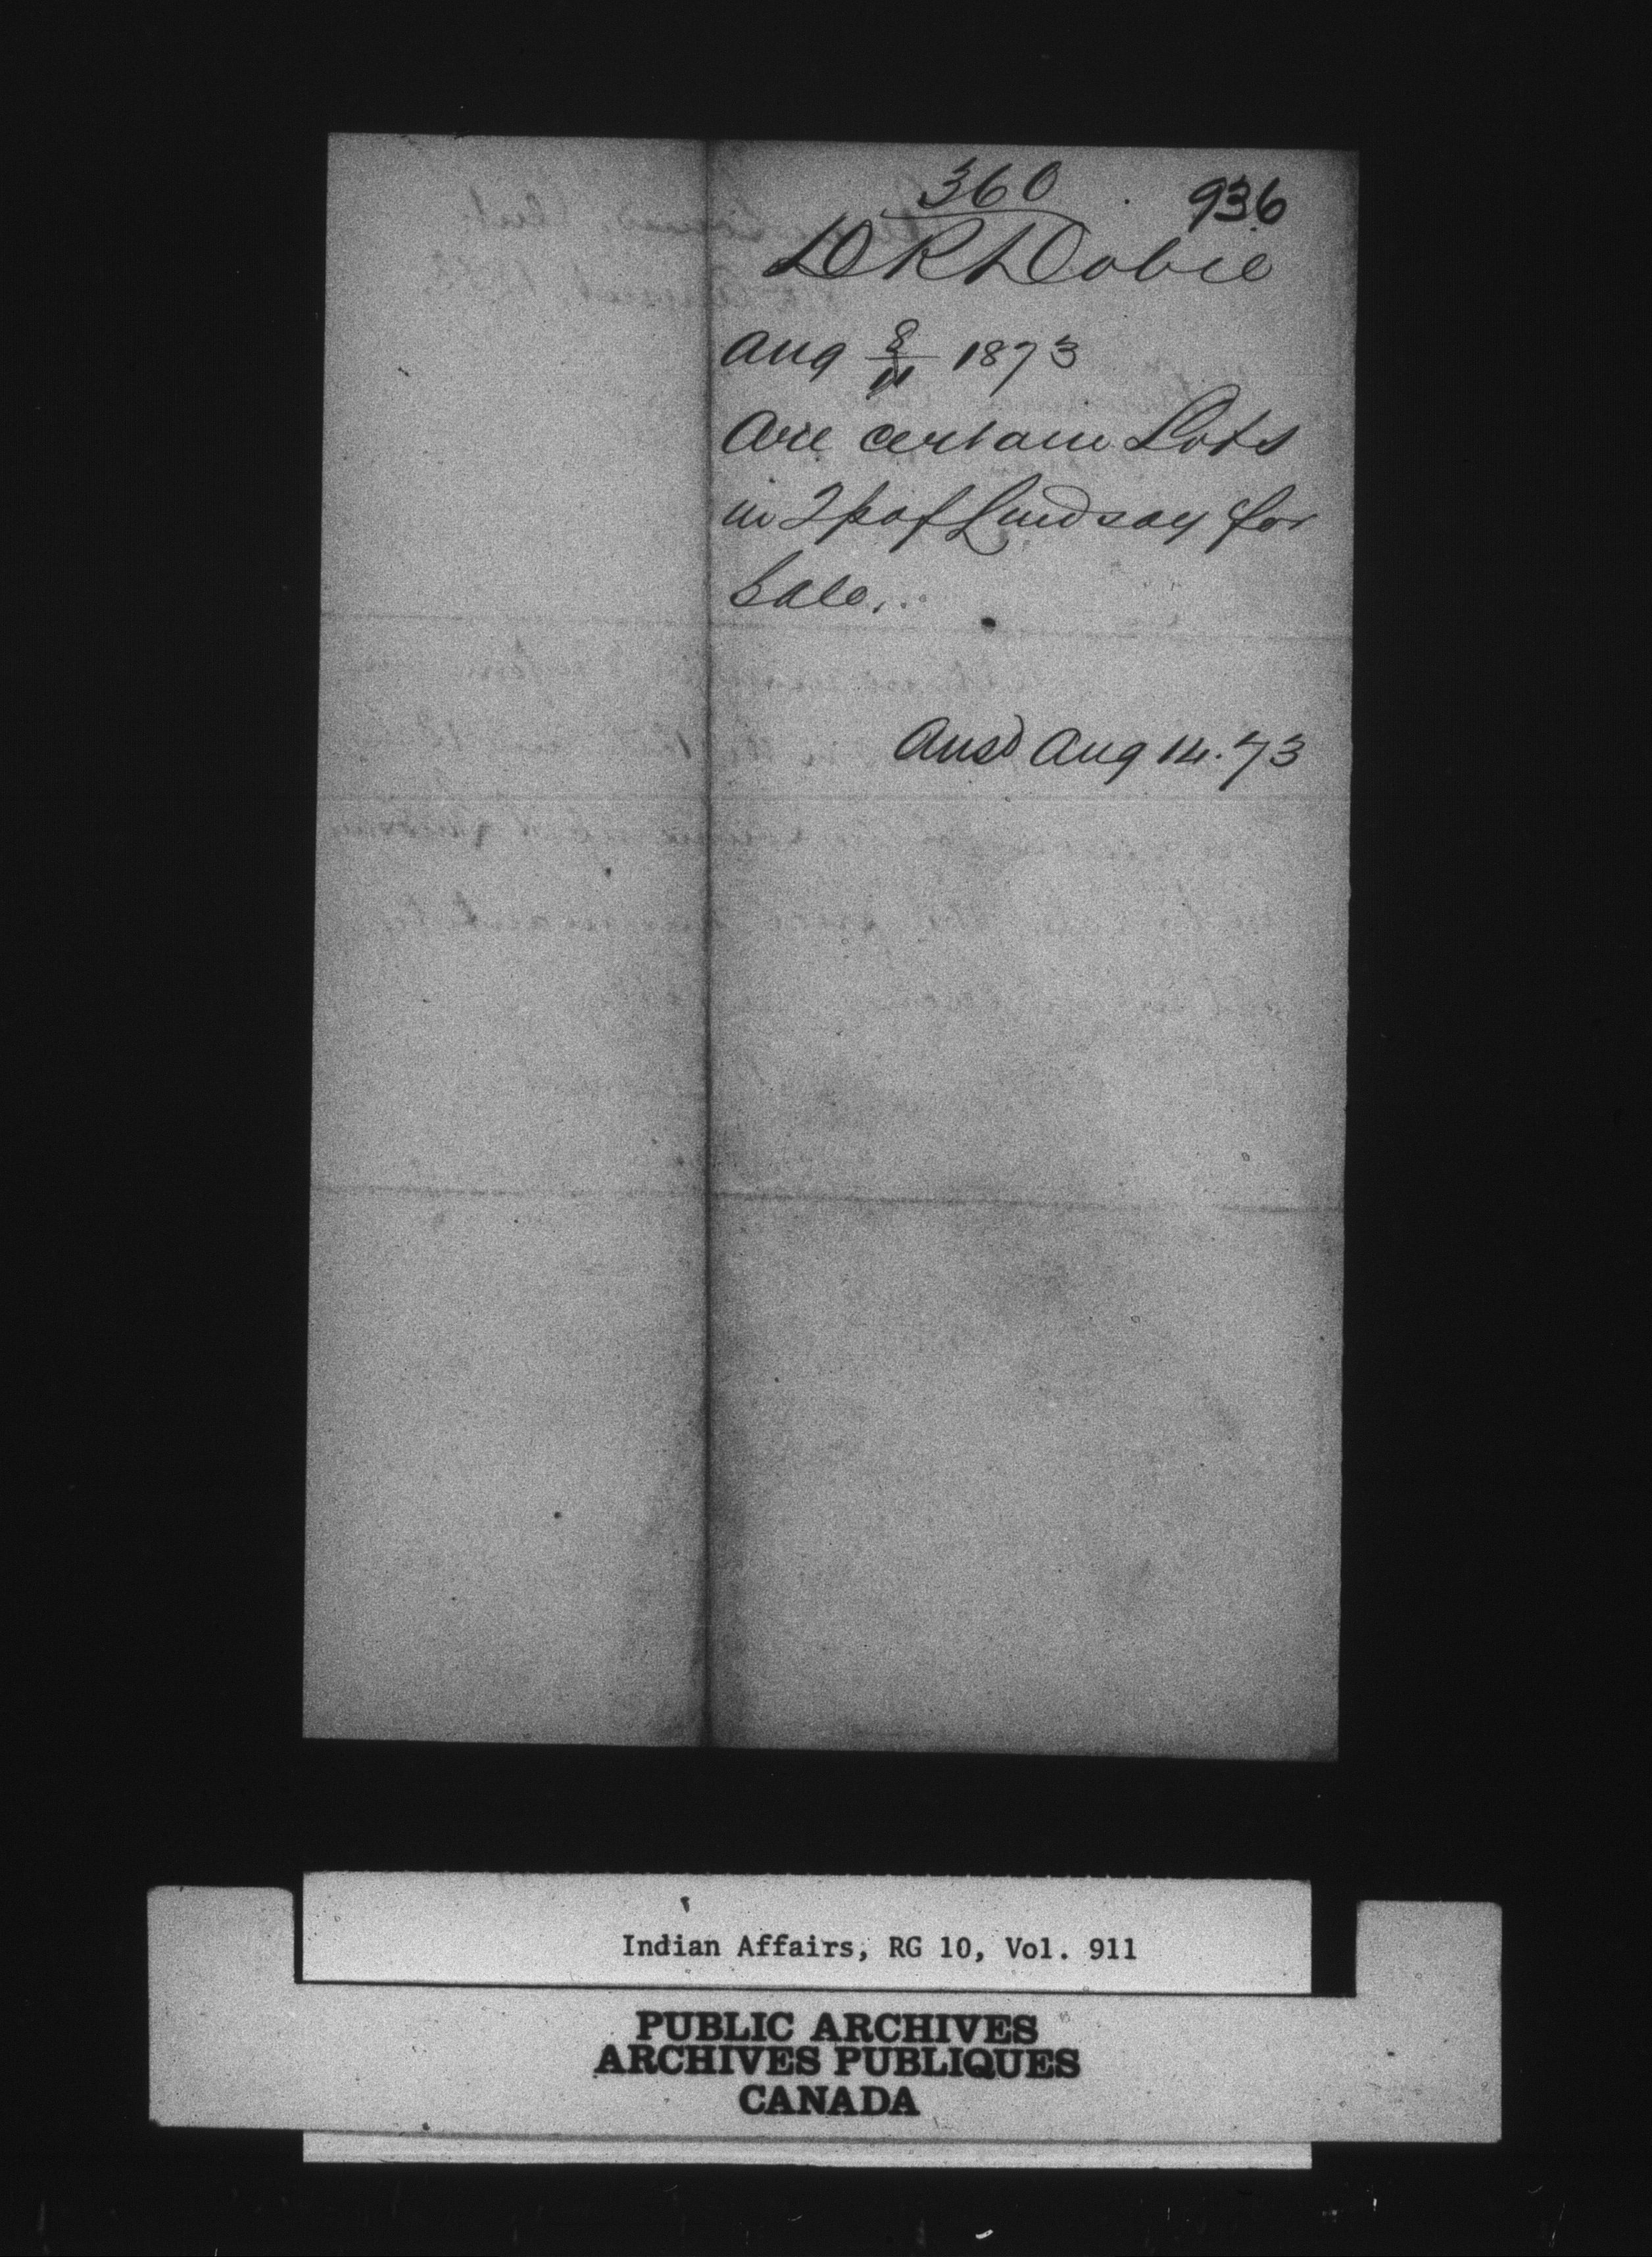 360 936
D R Dobie
Aug 8/11 1873
Are certain Lots
in Tp of Lindsay for
Sale.
Ansd Aug 14. 73
Indian Affairs, RG 10, Vol. 911
PUBLIC ARCHIVES
ARCHIVES PUBLIQUES
CANADA